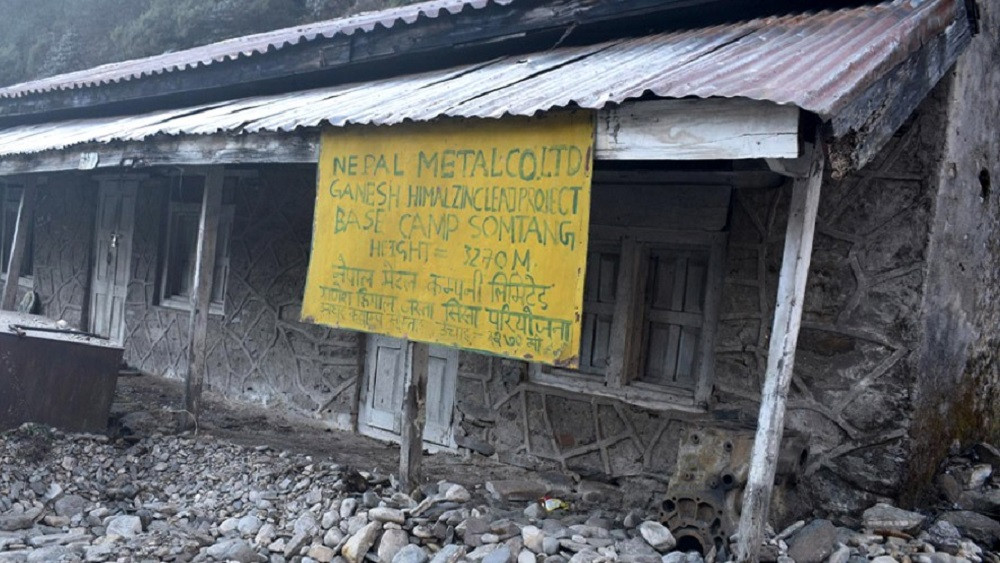 NEPAL METAL CO. LTD
GANESH HIMAL ZINC LEAD PROJECT
BASE CAMP SOMTANG
HEIGHT = 3270 M.
नेपाल मेटल कम्पनी लिमिटेड
गणेश हिमाल जस्ता सिसा परियोजना
३२७० मी